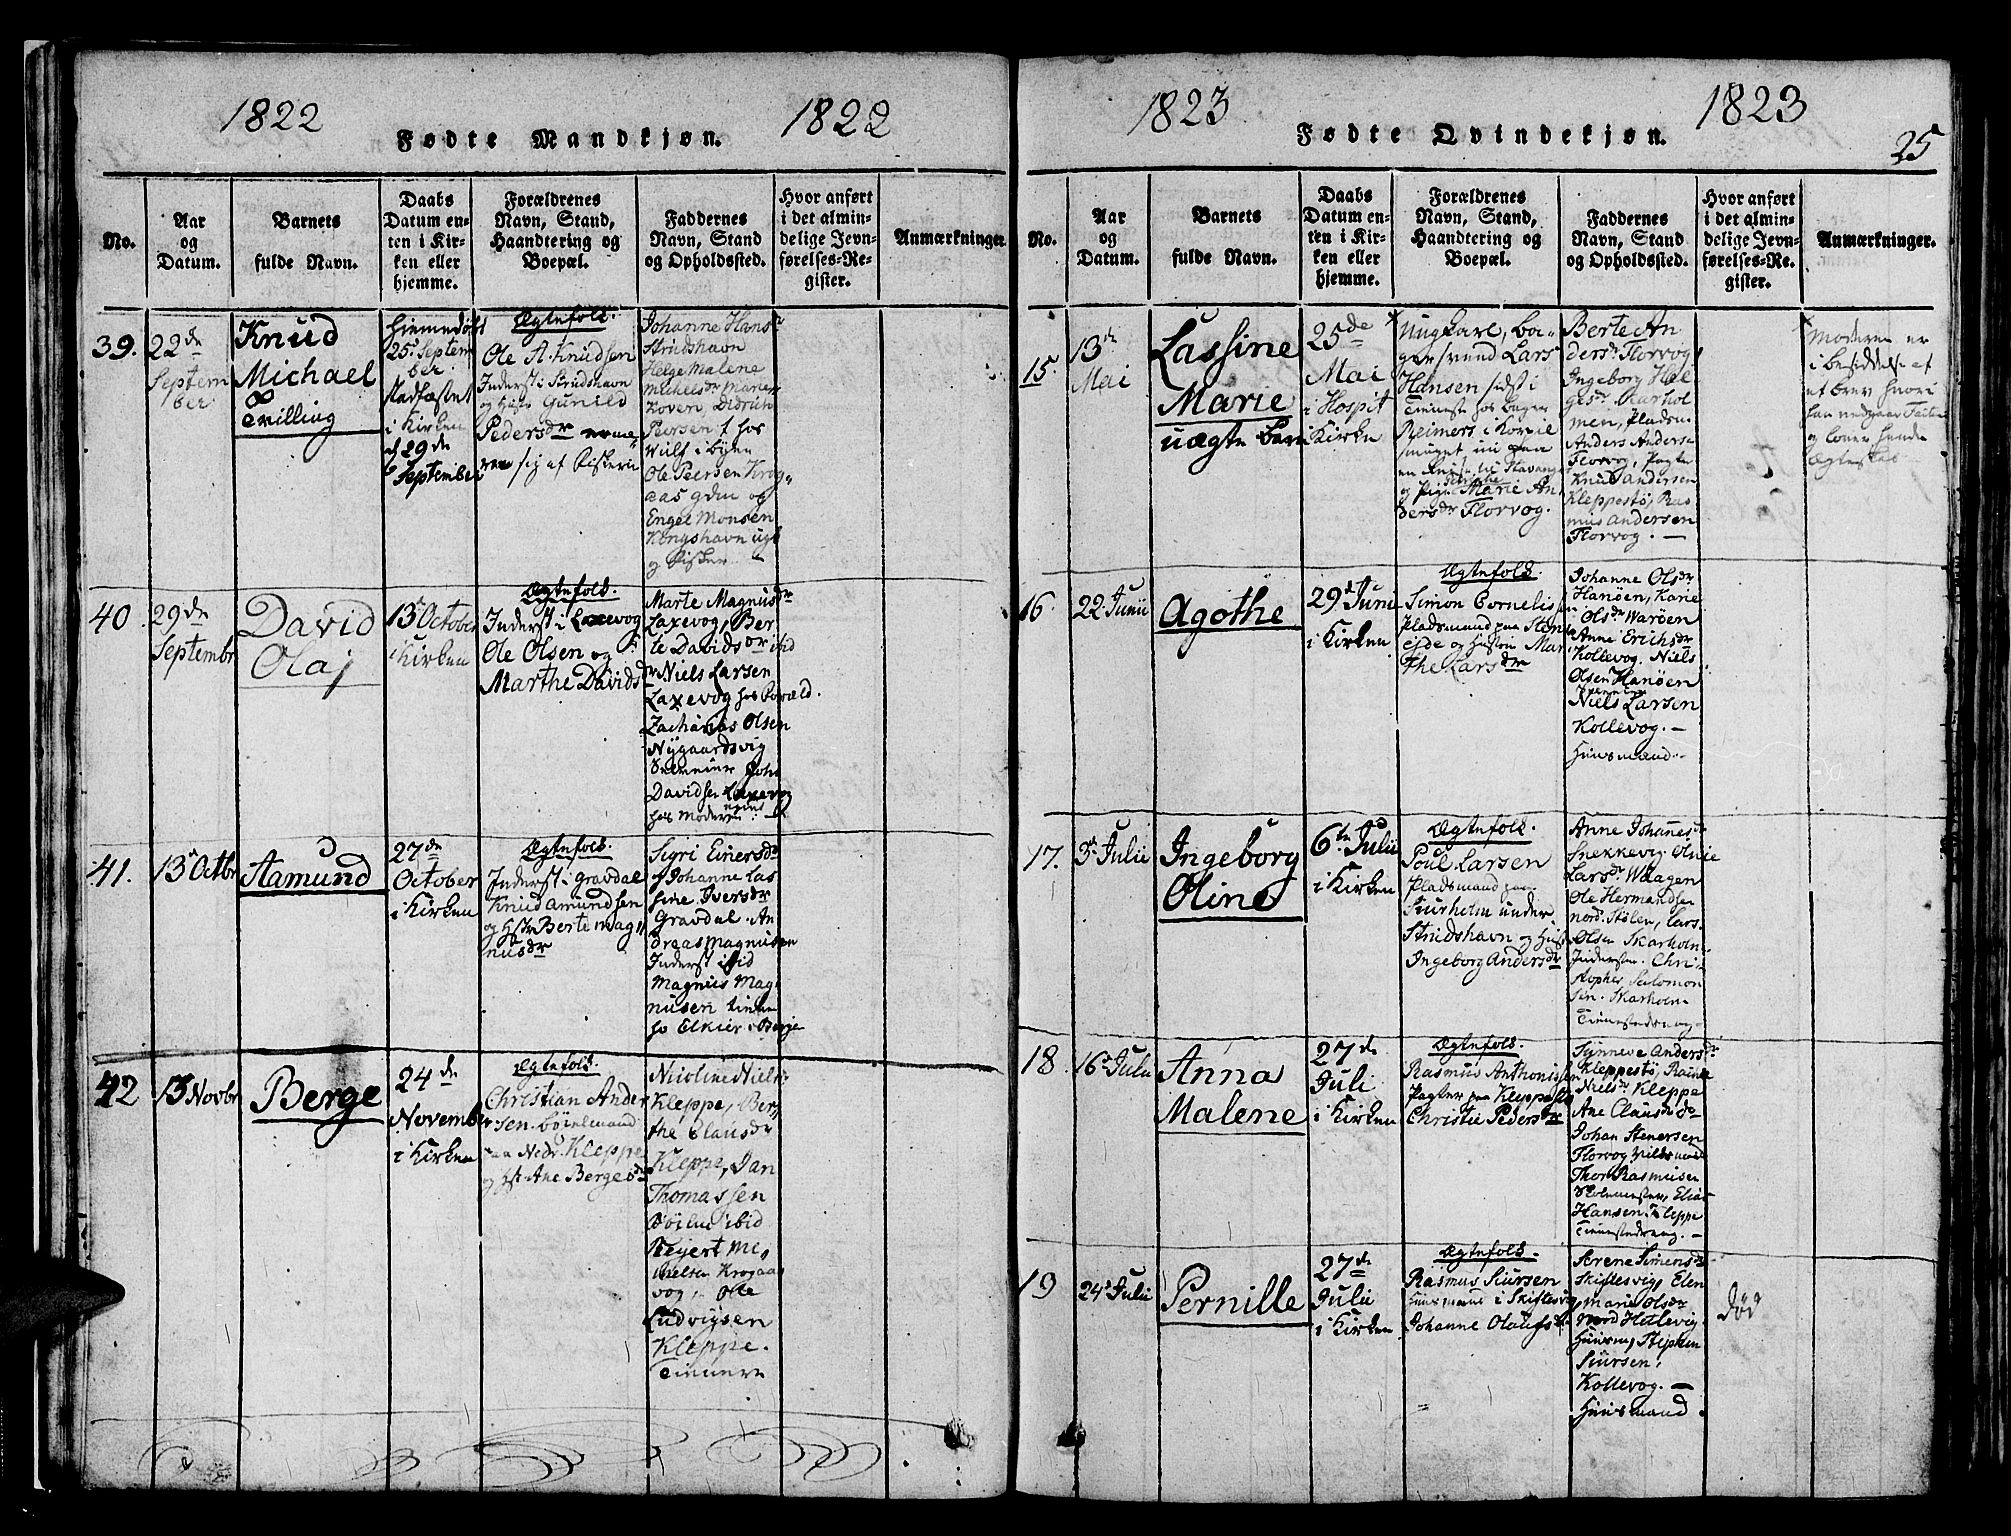 1822
Fødte Mandkjøn.
1822
No.
Aar
og
Datum.
Barnets
fulde Navn.
Daabs
Datum en-
ten i Kir-
ken eller
hjemme.
Forældrenes
Navn, Stand,
Haandtering og
Boepæl.
Faddernes
Navn, Stand
og Opholdssted.
Hvor anført
i det almin-
delige Jevn-
førelses-Re-
gister.
Anmærkninger.
39.
22de
Septem
ber
Knud
Michael
Tvilling
Hiemmedøbt
25. Septem
ber.
Stadfæstet
i Kirken
d 29de
September
Ægtefolk.
Ole A. Knudsen
Inderst i Strudshavn
og Hstr Gunild
Pedersdr
sig af Fiskerie
Johanne Hansdr
Strudshavn
Helge Malene
Michelsdr
Koven, Didrich
Peersen t. hos
Wulf i byen
Ole Peersen Krog
aas gdm og
Engel Monsen
Kongshavn ugt
og Fisker
40
29de
Septembr
David
Olaj
13 October
i Kirken
Ægtefolk.
Inderst i Laxevog
Ole Olsen og
Marthe Davidsdr
Marte Magnusdr
Laxevog, Ber
te Davidsdr ibid
Niels Larsen
Laxevog hos Foræld.
Zacharias Olsen
Nygaardsvig
John
Davidsen Laxevog
hos Moderen
41.
13 Octbr
Aamund
27de
October
i Kirken
Ægtefolk.
Inderst i gravdal
Knud Amundsen
og Hstr Berte mag
nusdr
Sigri Einersdr
Johanne Las
sine Iversdr
Gravdal. An
dreas Magnusen
Inderst ibid
Magnus Mag
nusen tiener
ho Elkier i Berge
42
13 Novbr
Berge
24de
November
i Kirken
Ægtefolk.
Christian Ander
sen. böielmand
paa Nedr. Kleppe
og hst Ane Bergesdr
Nicoline Niels
Kleppe, Ber
the Clausdr
Kleppe, Dan
Thomassen
ibid
Mi
chelsen Krogaa
vog, Ole
Ludvigsen
Kleppe.
Tienere
1823
Fødte Qvindekjøn.
1823
25
No.
Aar
og
Datum.
Barnets
fulde Navn.
Daabs
Datum en-
ten i Kir-
ken eller
hjemme.
Forældrenes
Navn, Stand,
Haandtering og
Boepæl.
Faddernes
Navn, Stand
og Opholdssted.
Hvor anført
i det almin-
delige Jevn-
førelses-Re-
gister.
Anmærkninger.
15.
13de
Mai
Lassine
Marie
uægte Barn
25de
Mai
i Hospit
Kirken
Ungkarl, Ba-
gersvend Lars
Hansen sidst i
Tieneste hos Bager
Reimers i Korskir
smuget nu paa
en Reise til Stavanger
og Pige Marie An
dersdr Florvog.
Berte An
dersdr Florvog
Ingeborg Hel
gesdr Skarhol
men, Pladsm
Anders Anders
Florvog, Pagter
Knud Andersen
Kleppestö, Ras
mus Andersen
Florvog. —
Moderen er
i besiddelse af
et brev hvori
han vedgaaer Faderen
og lover hende
Ægteskab
16
22. Junii
Agothe
29de Juni
i Kirken
Ægtefolk.
Simon Cornelissen
Pladsmand paa Sten
ejde og Hustru Mar
the Larsdr
Johanne Olsdr
Hanöen, Karie
Olsdr Waröen
Anne Erichsdr
Kollevog. Niels
Olsen Hanöen
Niels Larsen
Kollevog. —
Huusmænd.
17.
3 Julii
Ingeborg
Oline
6te Julii
i Kirken
Ægtefolk.
Poul Larsen
Pladsmand paa
Tuurholm under
Strudshavn og Hust
Ingeborg Andersdr
Anne Johanesdr
Snekkevig. Olsie
Larsdr Waagen
Ole Hermandsen
nord. Stölen, Lars
Olsen Skarholm
Inderster. Chri
stopher Salomon
sen. Skarholm
18
16 Julii
Anna
Malene
27de
Juli
i Kirken
Ægtefolk.
Rasmus Anthonissen
Pagter paa Kleppestö
Christie Pedersdr
Synneve Andersdr
Kleppestö, Rasmie
Nielsdr Kleppe
Ane Clausdr do
Johan Stenersen
Florvog
Thor Rasmusen
Elias
Hansen. Kleppe
19
24 Julii
Pernille
27de
Julii
i Kirken
Ægtefolk.
Rasmus Siursen
Huusmand i Skiftesvig
Johanne Olaufsdr
Serene Simensdr
Skiftesvig, Elen
Marie Olsdr
Nord Hetlevig.
Huusm, Stephen
Siursen,
Kollevog. —
Huusmænd.
død